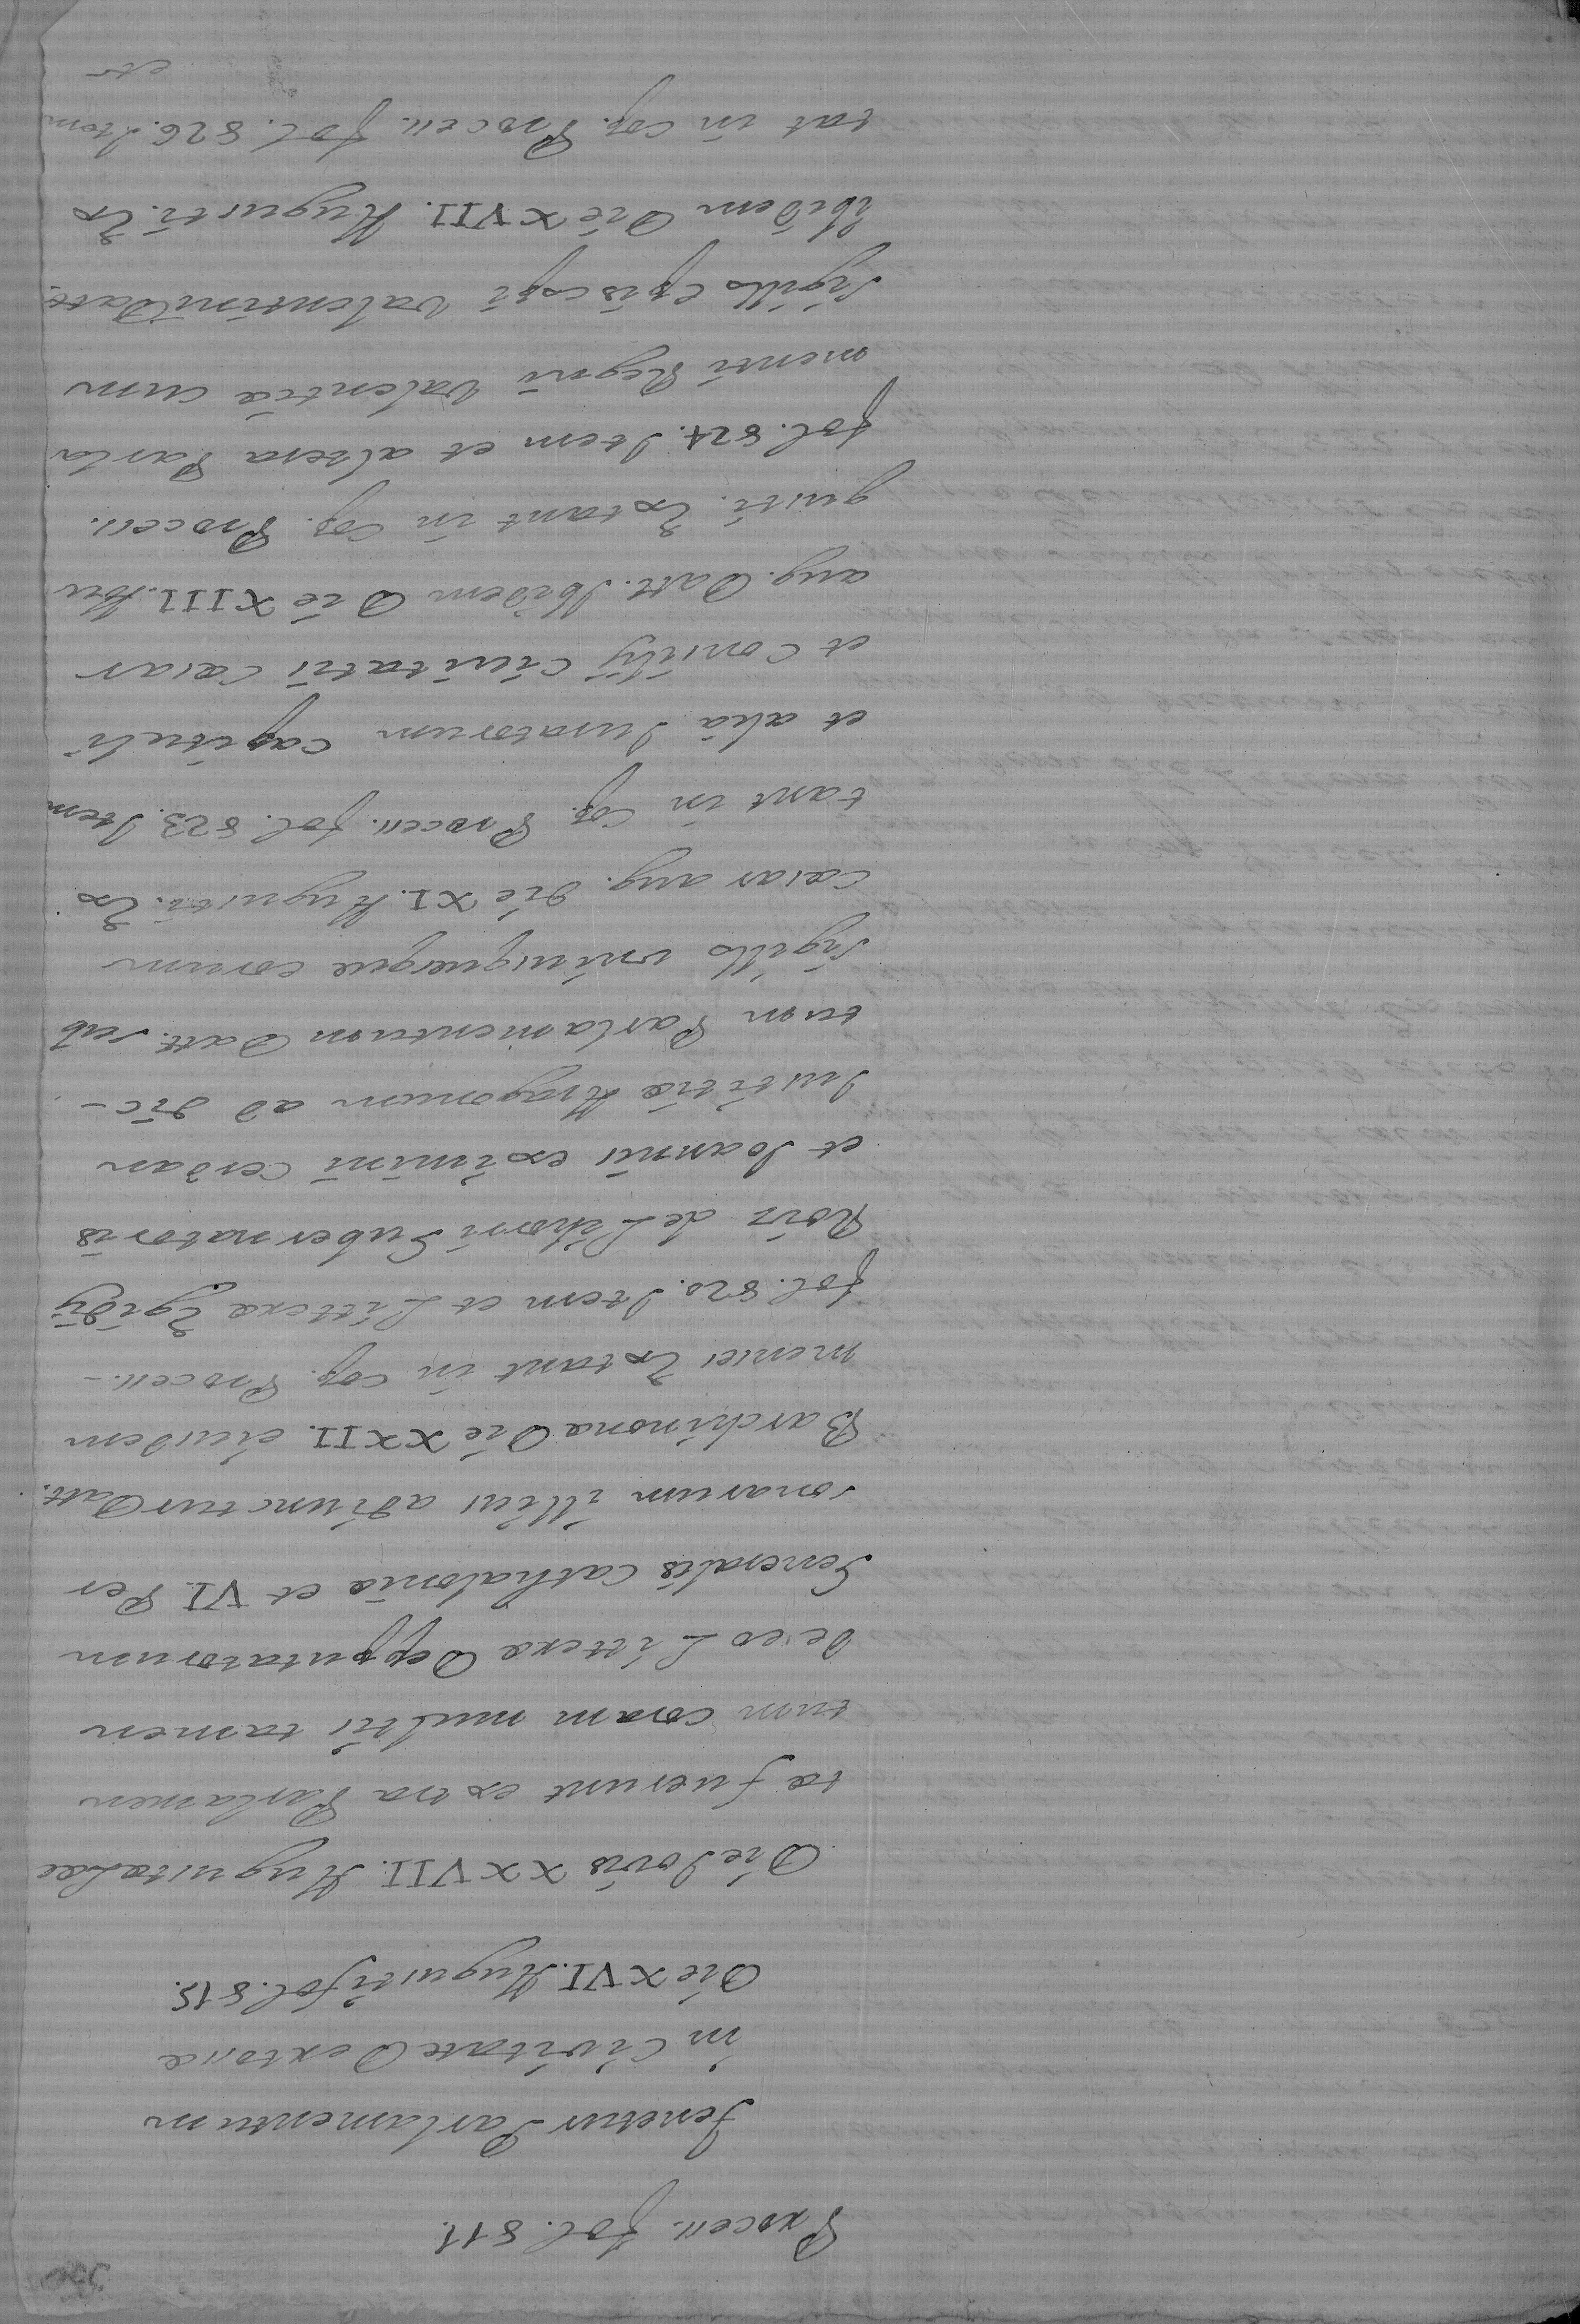 Process. fol. 811.
Tenetur Parlamentum
in Civitate Dextosæ
Die XVI. Augusti fol. 815.
Die Jovis XXVII. Augusti Lec
tæ fuerunt extra Parlamen
tum coram multis tamen
de eo Litteræ Deputatorum
Generalis Cathaloniæ et VI. Per
sonarum illius adiunctur Datt.
Barchinonæ Die XXII. eiusdem
mensis Extant in cop. Process. -
fol. 820. Item et Litteræ Egidij
Roiz de Lihorri Gubernatoris
et Joannis eximini Cerdan
Justitiæ Aragonum ad dic-
tum Parlamentum Datt. sub
sigillo uniuiusque eorum
Cæsar aug. die XI. Augusti. Ex
tant in cop. Process. fol. 823. Item
et aliæ Juratorum capituli
et Consilij civitatis Cæsar
aug. Datt. Ibidem Die XIII. Au
gusti. Extant in cop. Process.
fol. 824. Item et altera Parla
menti Regni Valentiæ cum
sigillo Episcopi Valentini Datt.
Ibidem Die XVII. Augusti. Ex
tat in cop. Process. fol. 826. Item
et